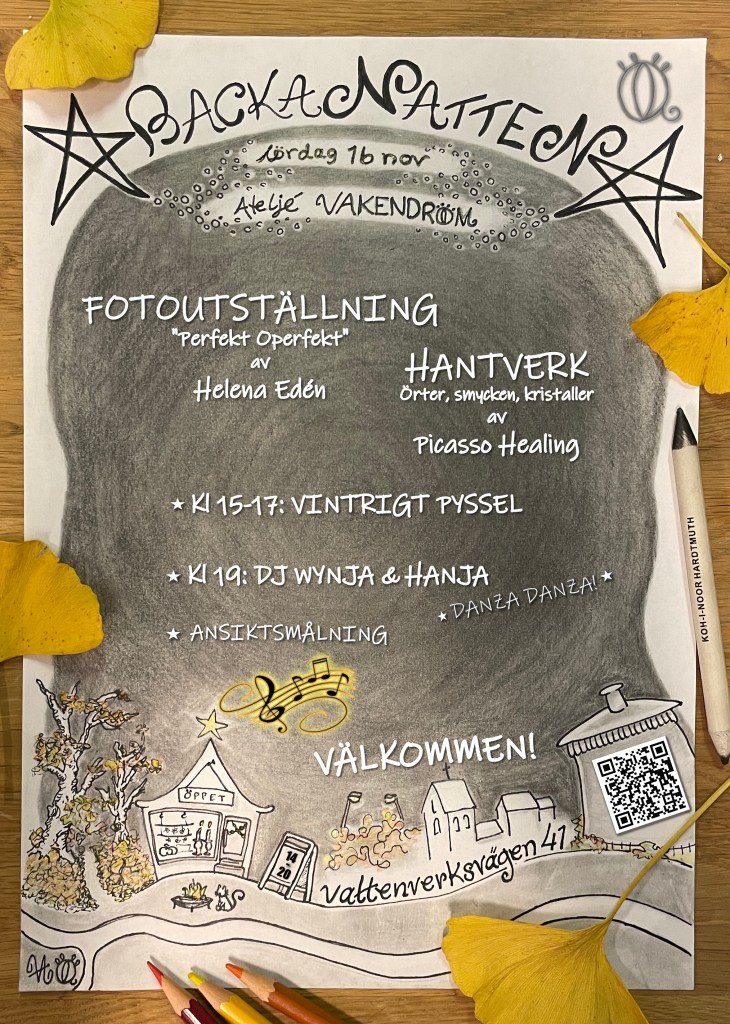 BACKANATTEN
lördag 16 nov
Ateljé VAKENDRÖM
FOTOUTSTÄLLNING
"Perfekt Operfekt"
av
Helena Edén
HANTVERK
Örter, smycken, kristaller
av
Picasso Healing
Kl 15-17: VINTRIGT PYSSEL
Kl 19: DJ WYNJA & HANJA
DANZA DANZA!
ANSIKTSMÅLNING
KOH-I-NOOR HARDTMUTH
VÄLKOMMEN!
ÖPPET
14
-
20
Vattenverksvägen 41